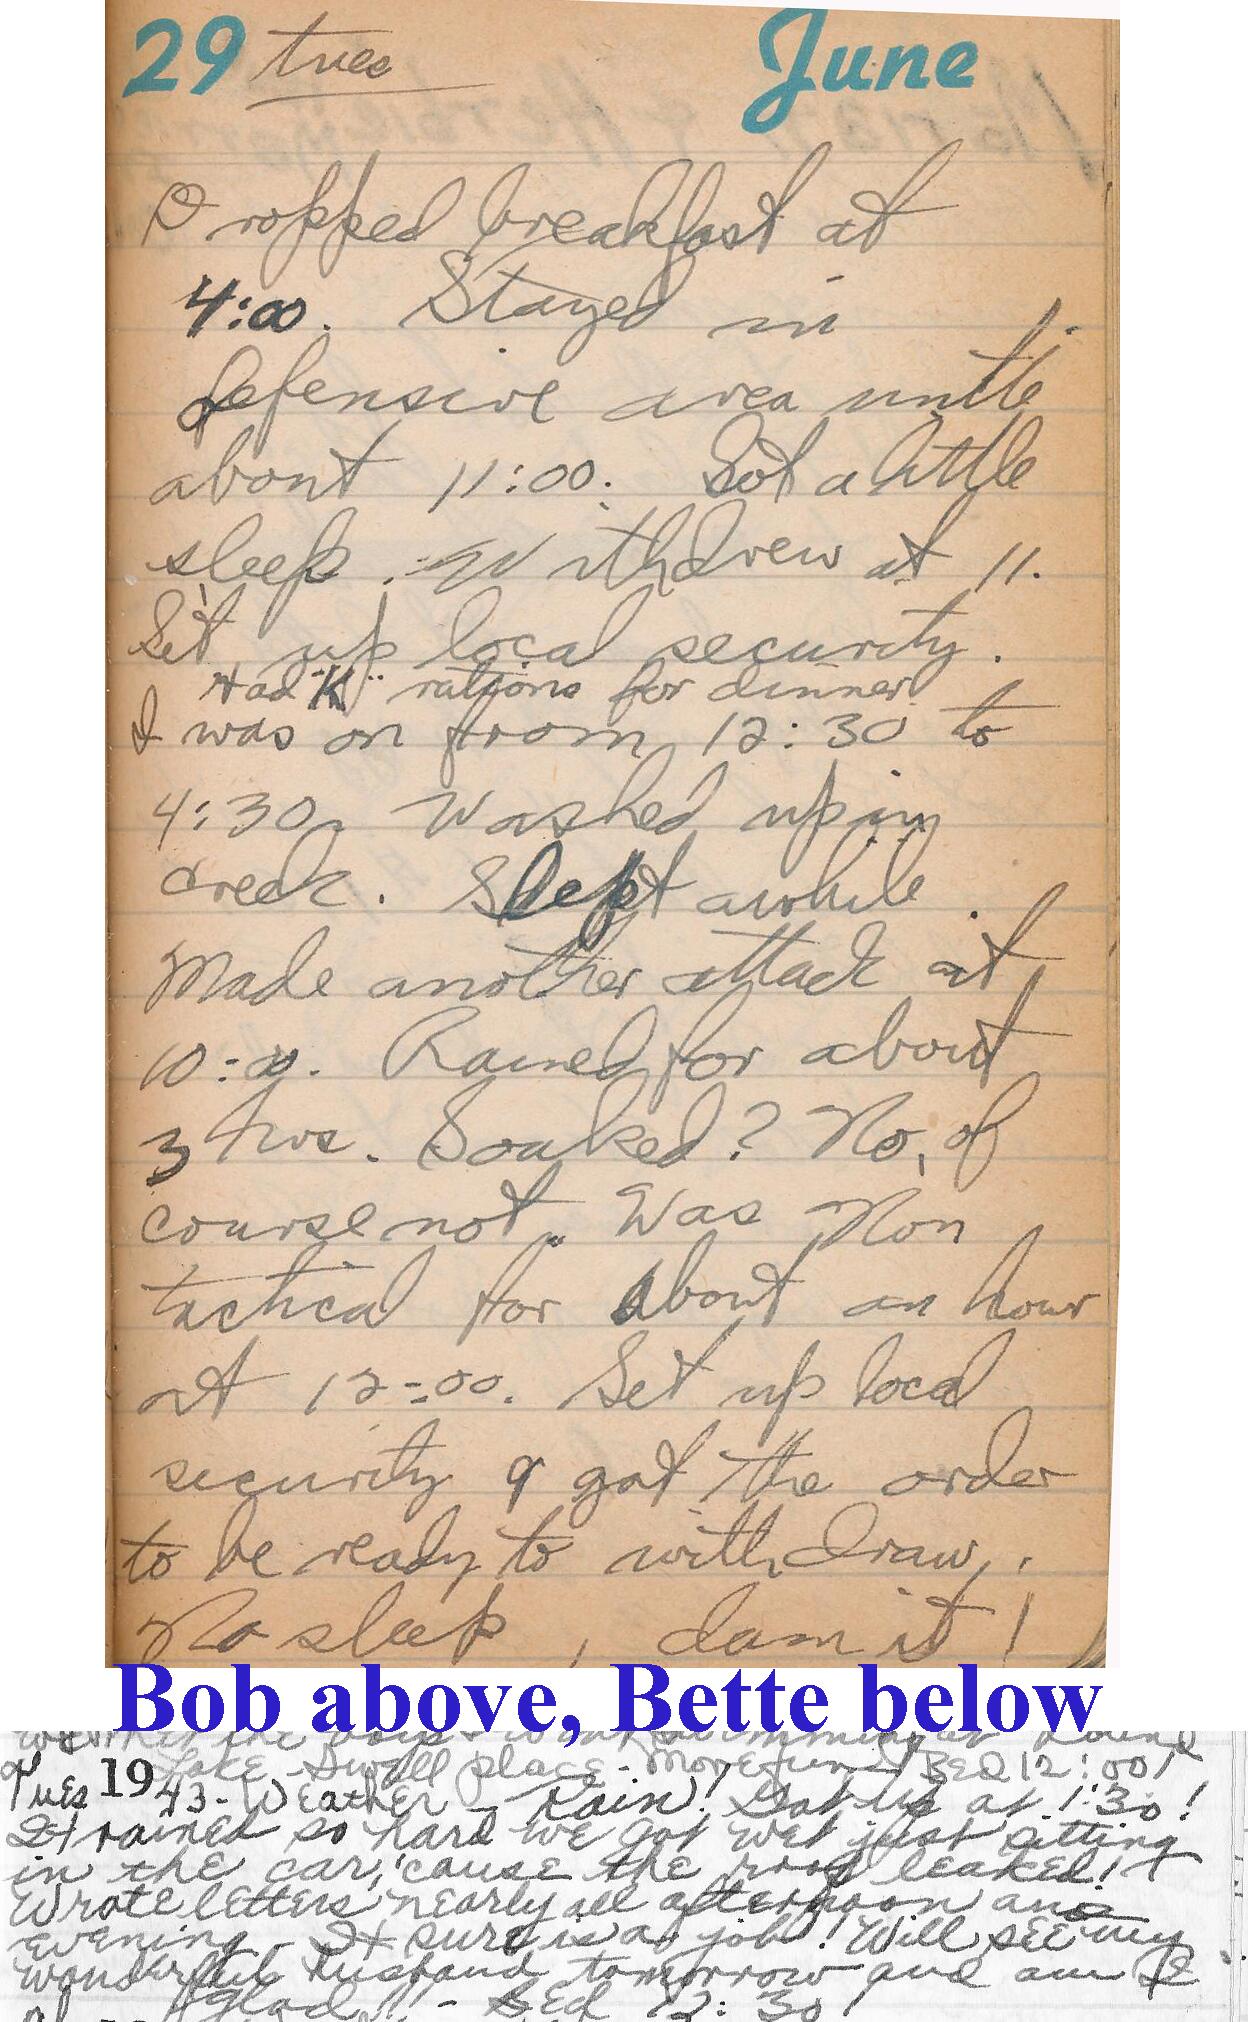 29 tues June
Dropped breakfast at
4:00. Stayed in
defensive area untle
about 11:00. Got a little
sleep. Withdrew at 11.
Set up local security.
Had "K" rations for dinner
I was on from 12:30 to
4:30. Washed up in
creek. Slept awhile.
Made another attack at
10:. Rained for about
3 hrs. Soaked? No, of
course not. Was Non
tactical for about an hour
at 12:00. Set up local
security & got the order
to be ready to withdraw.
No sleep, dam it!
Bob above, Bette below
the boys swimming at
Lake - Swell place - More fun! Bed 12:00!
Tues 1943 - Weather - Rain! Got up at 1:30!
It rained so hard we got wet just sitting
in the car, 'cause the roof leaked!
Wrote letters nearly all afternoon and
evening - It sure is a job! Will see my
wonderful husband tomorrow and am I
glad!! - Bed 12:30